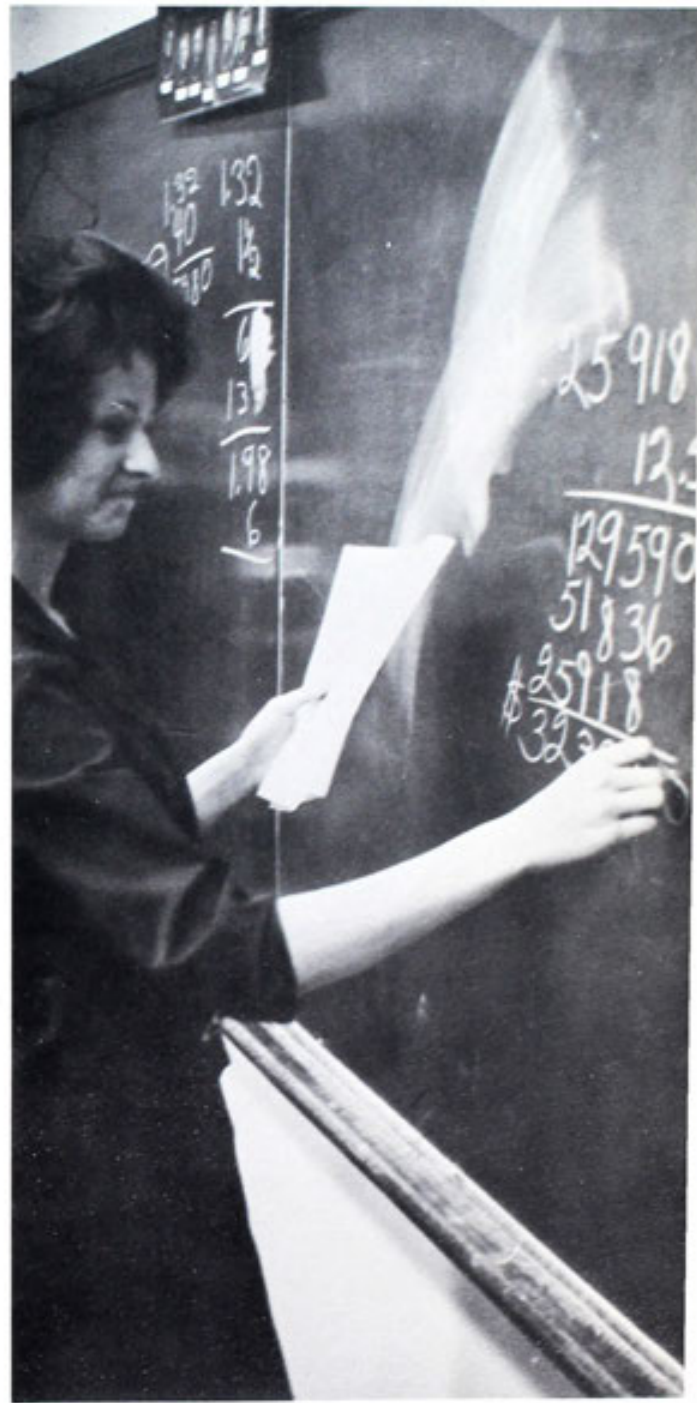 1.32
40
1.32
1½
1.98
6
25918
12.5
129590
51836
$ 25918
32